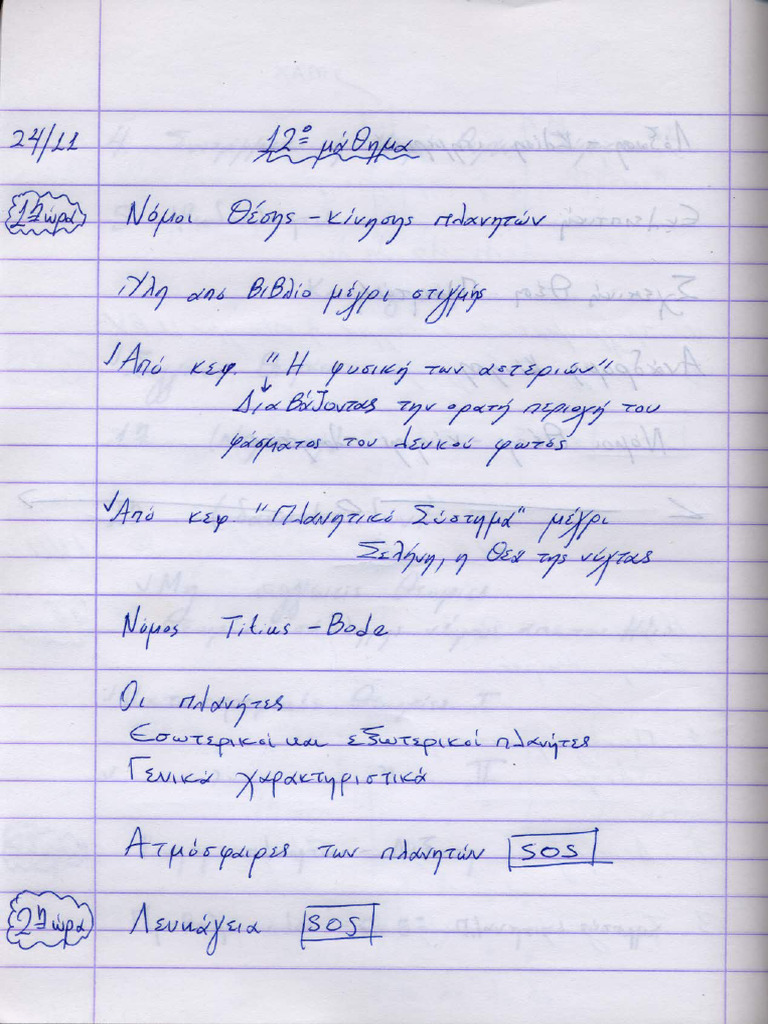 24/11 12º μάθημα
1η ώρα Νόμοι θέσης - κίνησης πλανητών
Ύλη απο βιβλίο μέχρι στιγμής
✓ Από κεφ. "Η φυσική των αστεριών"
↓ Διαβάζοντας την ορατή περιοχή του
φάσματος του λευκού φωτός
✓ Από κεφ. "Πλανητικό Σύστημα" μέχρι
Σελήνη, η θεά της νύχτας
Νόμος Titius - Bode
Οι πλανήτες
Εσωτερικοί και εξωτερικοί πλανήτες
Γενικά χαρακτηριστικά
Ατμόσφαιρες των πλανητών SOS
2η ώρα Λευκάγεια SOS